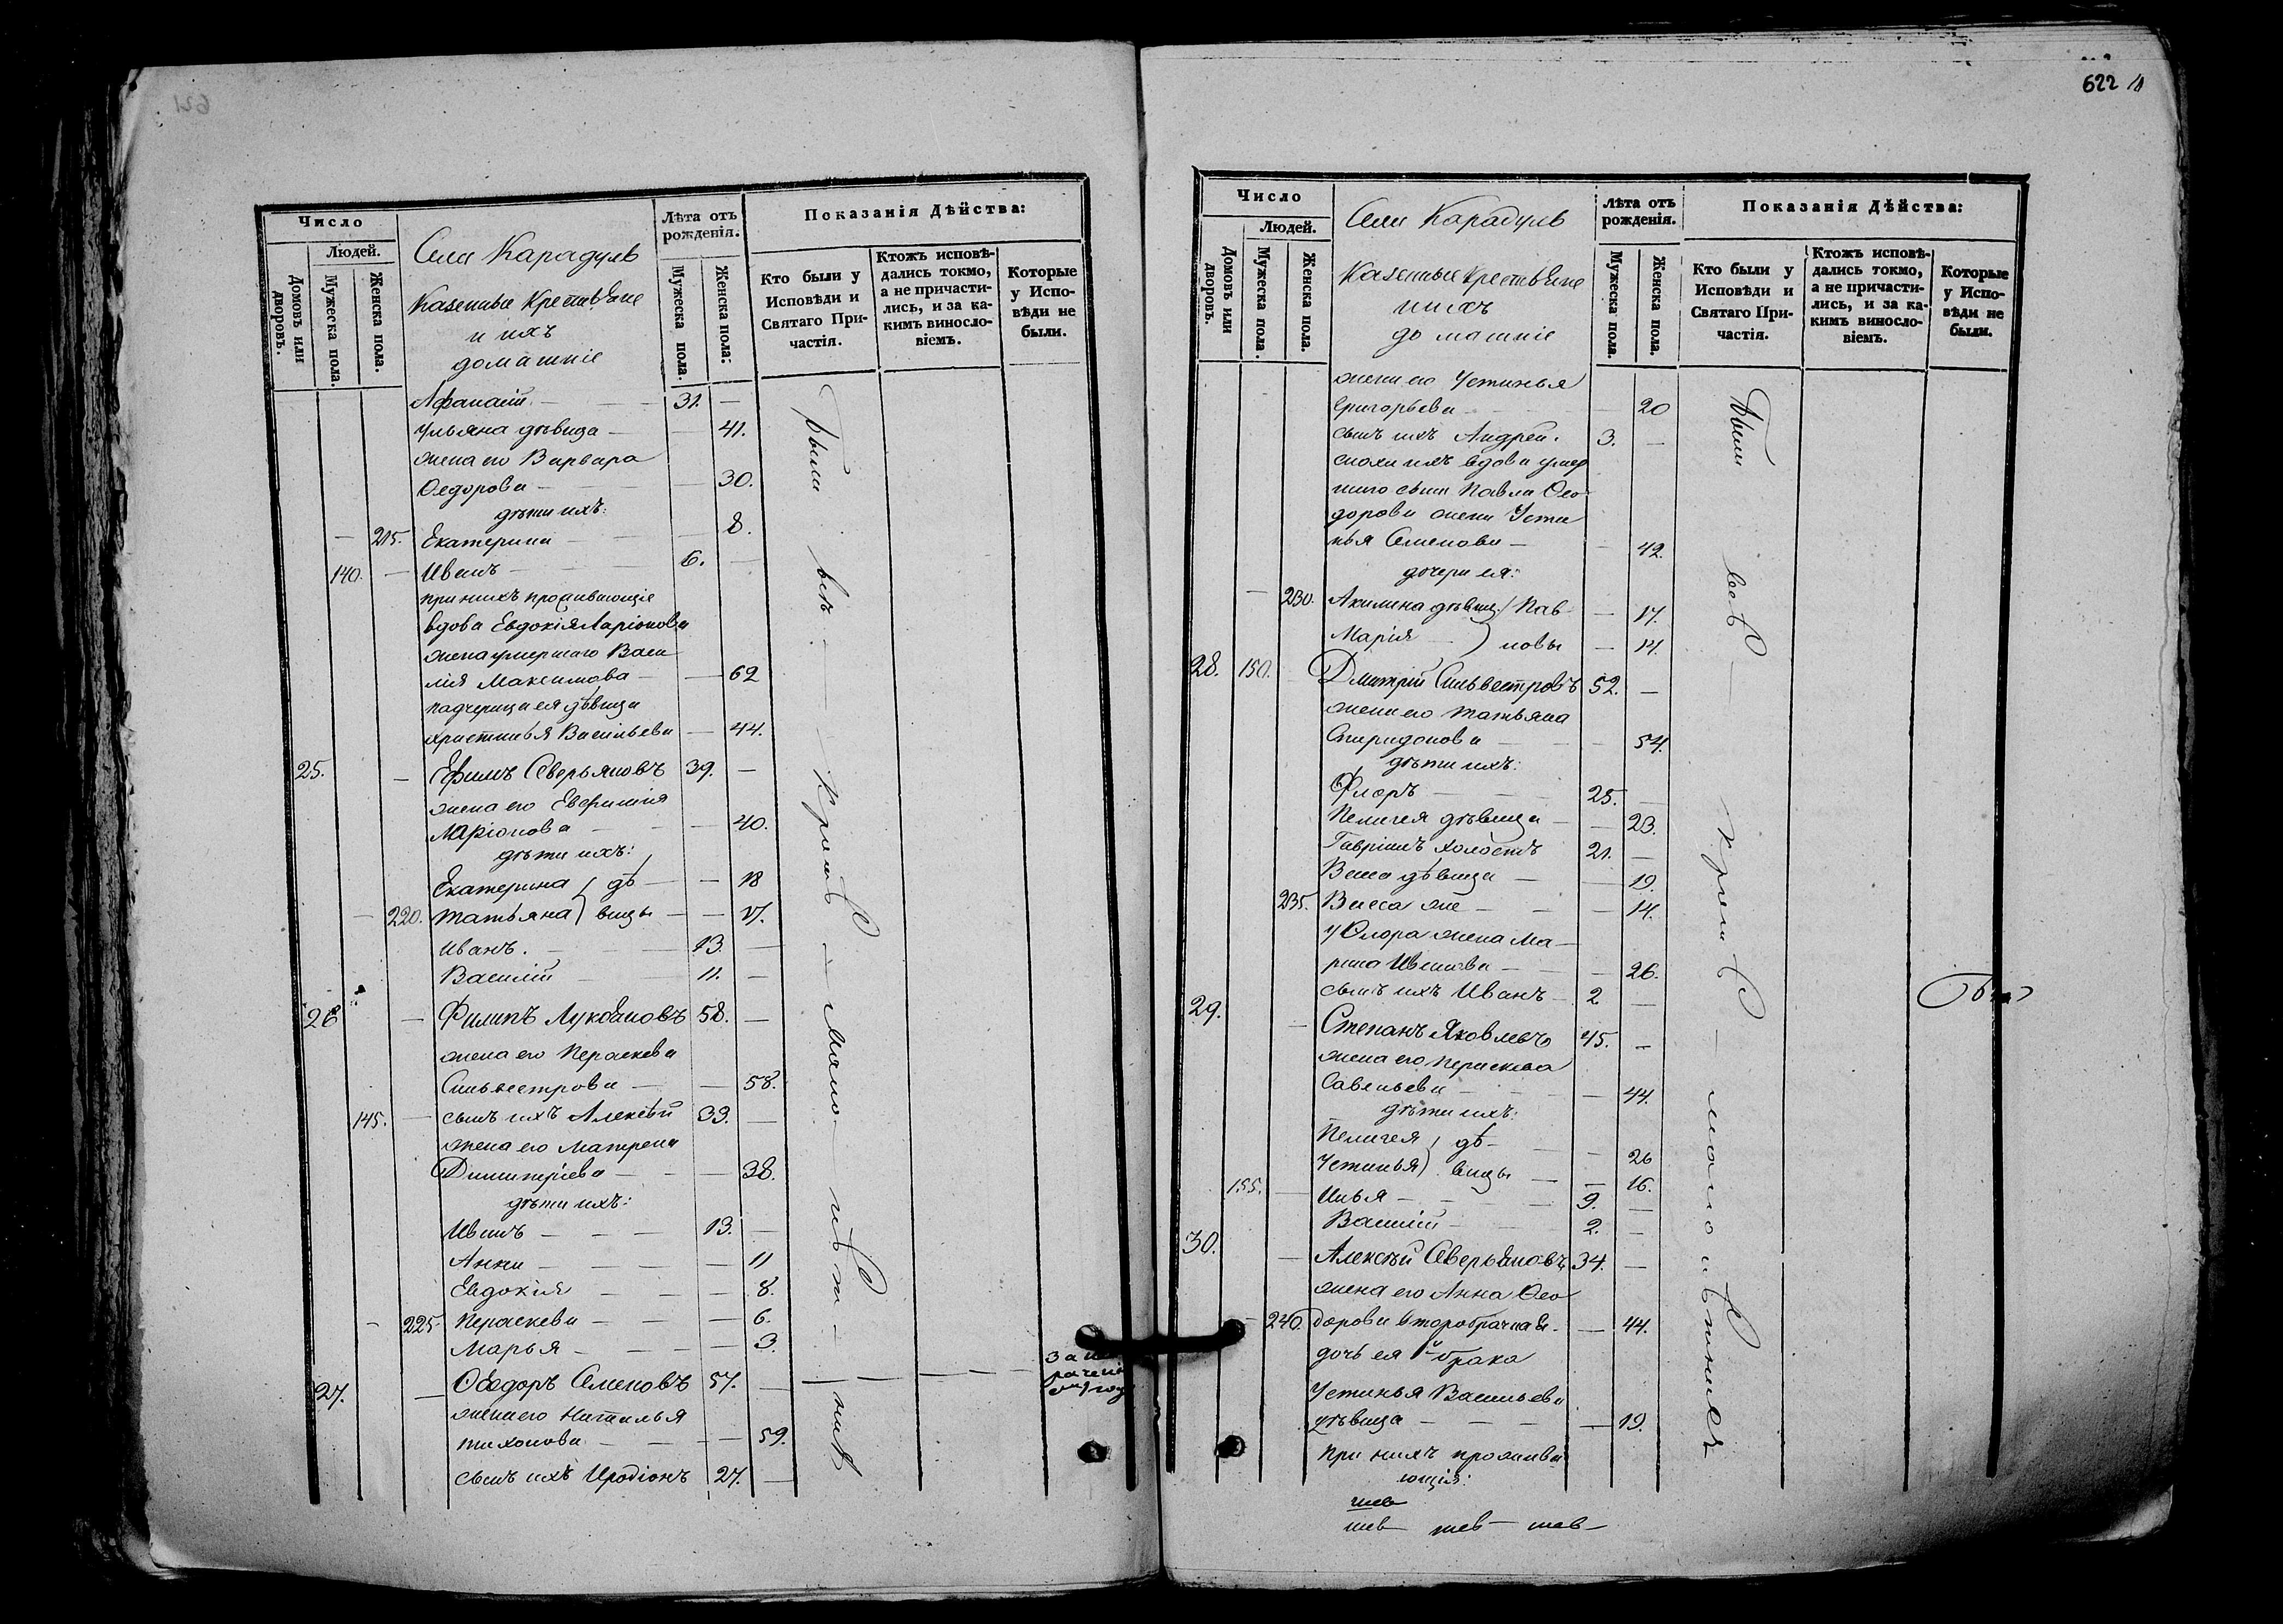 621
Число
Людей.
Домовъ или дворовъ.
Мужеска пола.
Женска пола.
Села Карадулъ
Казенные Крестьяне
и ихъ
домашніе
Лѣта отъ рожденія.
Мужеска пола.
Женска пола.
Показанія Дѣйства:
Кто были у Исповѣди и Святаго Причастія.
Ктожъ исповѣдались токмо, а не причастились, и за какимъ винословіемъ.
Которые у Исповѣди не были.
Афанасій 31. —
Ульяна дѣвица — — 41.
жена его Варвара
Ѳедорова — — 30.
дѣти ихъ:
— 215. Екатерина — — 8.
140. — Иванъ — 6. —
при нихъ проживающіе
вдова Евдокія Ларіонова
жена умершаго Васи
лія Максимова — — 62
падчерица ея дѣвица
Христинья Васильева — 44.
25. — Ефимъ Северьяновъ 39. —
жена его Евфимія
Ларіонова — — 40.
дѣти ихъ:
Екатерина ) дѣ — — 18
— 220. Татьяна ) вицы — — 17.
Иванъ. — 13. —
Василій — 11. —
26 — Филипъ Лукояновъ 58. —
жена его Параскева
Сильвестрова — — 58.
145. — сынъ ихъ Алексѣй 33. —
жена его Матрена
Димитріева — — 38.
дѣти ихъ:
Иванъ — — — 13. —
Анна — — — — 11
Евдокія — — — 8.
— 225. Параскева — — — 6.
Марья — — — — 3.
27. — Ѳеодоръ Семеновъ 57. —
жена его Наталья
Тихонова — — — 59.
сынъ ихъ Иродіонъ 27. —
Были всѣ — кромѣ — мало — лѣт — нихъ
622
Число
Людей.
Домовъ или дворовъ.
Мужеска пола.
Женска пола.
Села Карадулъ
Казенные Крестьяне
и ихъ
домашніе
Лѣта отъ рожденія.
Мужеска пола.
Женска пола.
Показанія Дѣйства:
Кто были у Исповѣди и Святаго Причастія.
Ктожъ исповѣдались токмо, а не причастились, и за какимъ винословіемъ.
Которые у Исповѣди не были.
жена его Устинья
Григорьева — — 20
сынъ ихъ Андрей. 3. —
сноха ихъ вдова умер
шаго сына Павла Ѳео
дорова жена Усти
нья Семенова — — 42.
дочери ея:
— 230. Акилина дѣвиц. ) Пав — 17.
Марія — ) ловы — 14.
28. 150. Дмитрій Сильвестровъ 52. —
жена его Татьяна
Спиридонова — — 54.
дѣти ихъ:
Флоръ — 25. —
Пелагея дѣвица — — 23.
Гавріилъ холостъ 21. —
Васса дѣвица — — 19.
235. Васса же — — — 14.
у Флора жена Ма—
рина Иванова — — 26.
сынъ ихъ Иванъ — 2 —
29. — Степанъ Яковлевъ 45. —
жена его Параскева
Савельева — — 44.
дѣти ихъ:
Пелагея ) дѣ — — 26
Устинья ) вицы — — 16.
155. — Илья — — 9. —
Василій — 2. —
30. — Алексѣй Северьяновъ 34. —
жена его Анна Ѳео
— 240. дорова второбрачная — 44.
дочь ея 1 брака
Устинья Васильева
дѣвица — — — 19.
при нихъ прожива
ющія:
Были всѣ — кромѣ — малолѣтнихъ